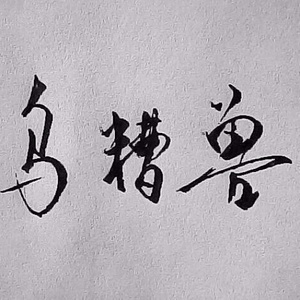 乌糟兽